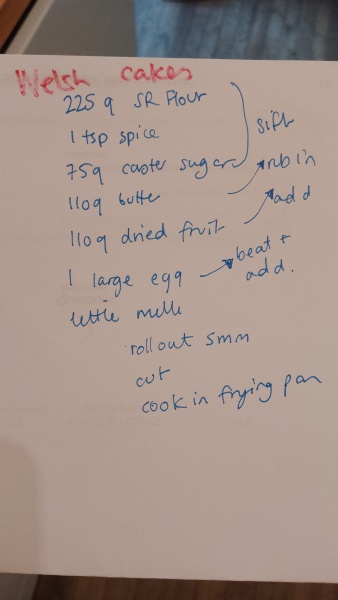 Welsh cakes
225g SR Flour
1 tsp spice
sift
75g caster sugar
110g butter
rub in
110g dried fruit
add
1 large egg
beat +
add.
little milk
roll out 5mm
cut
cook in frying pan